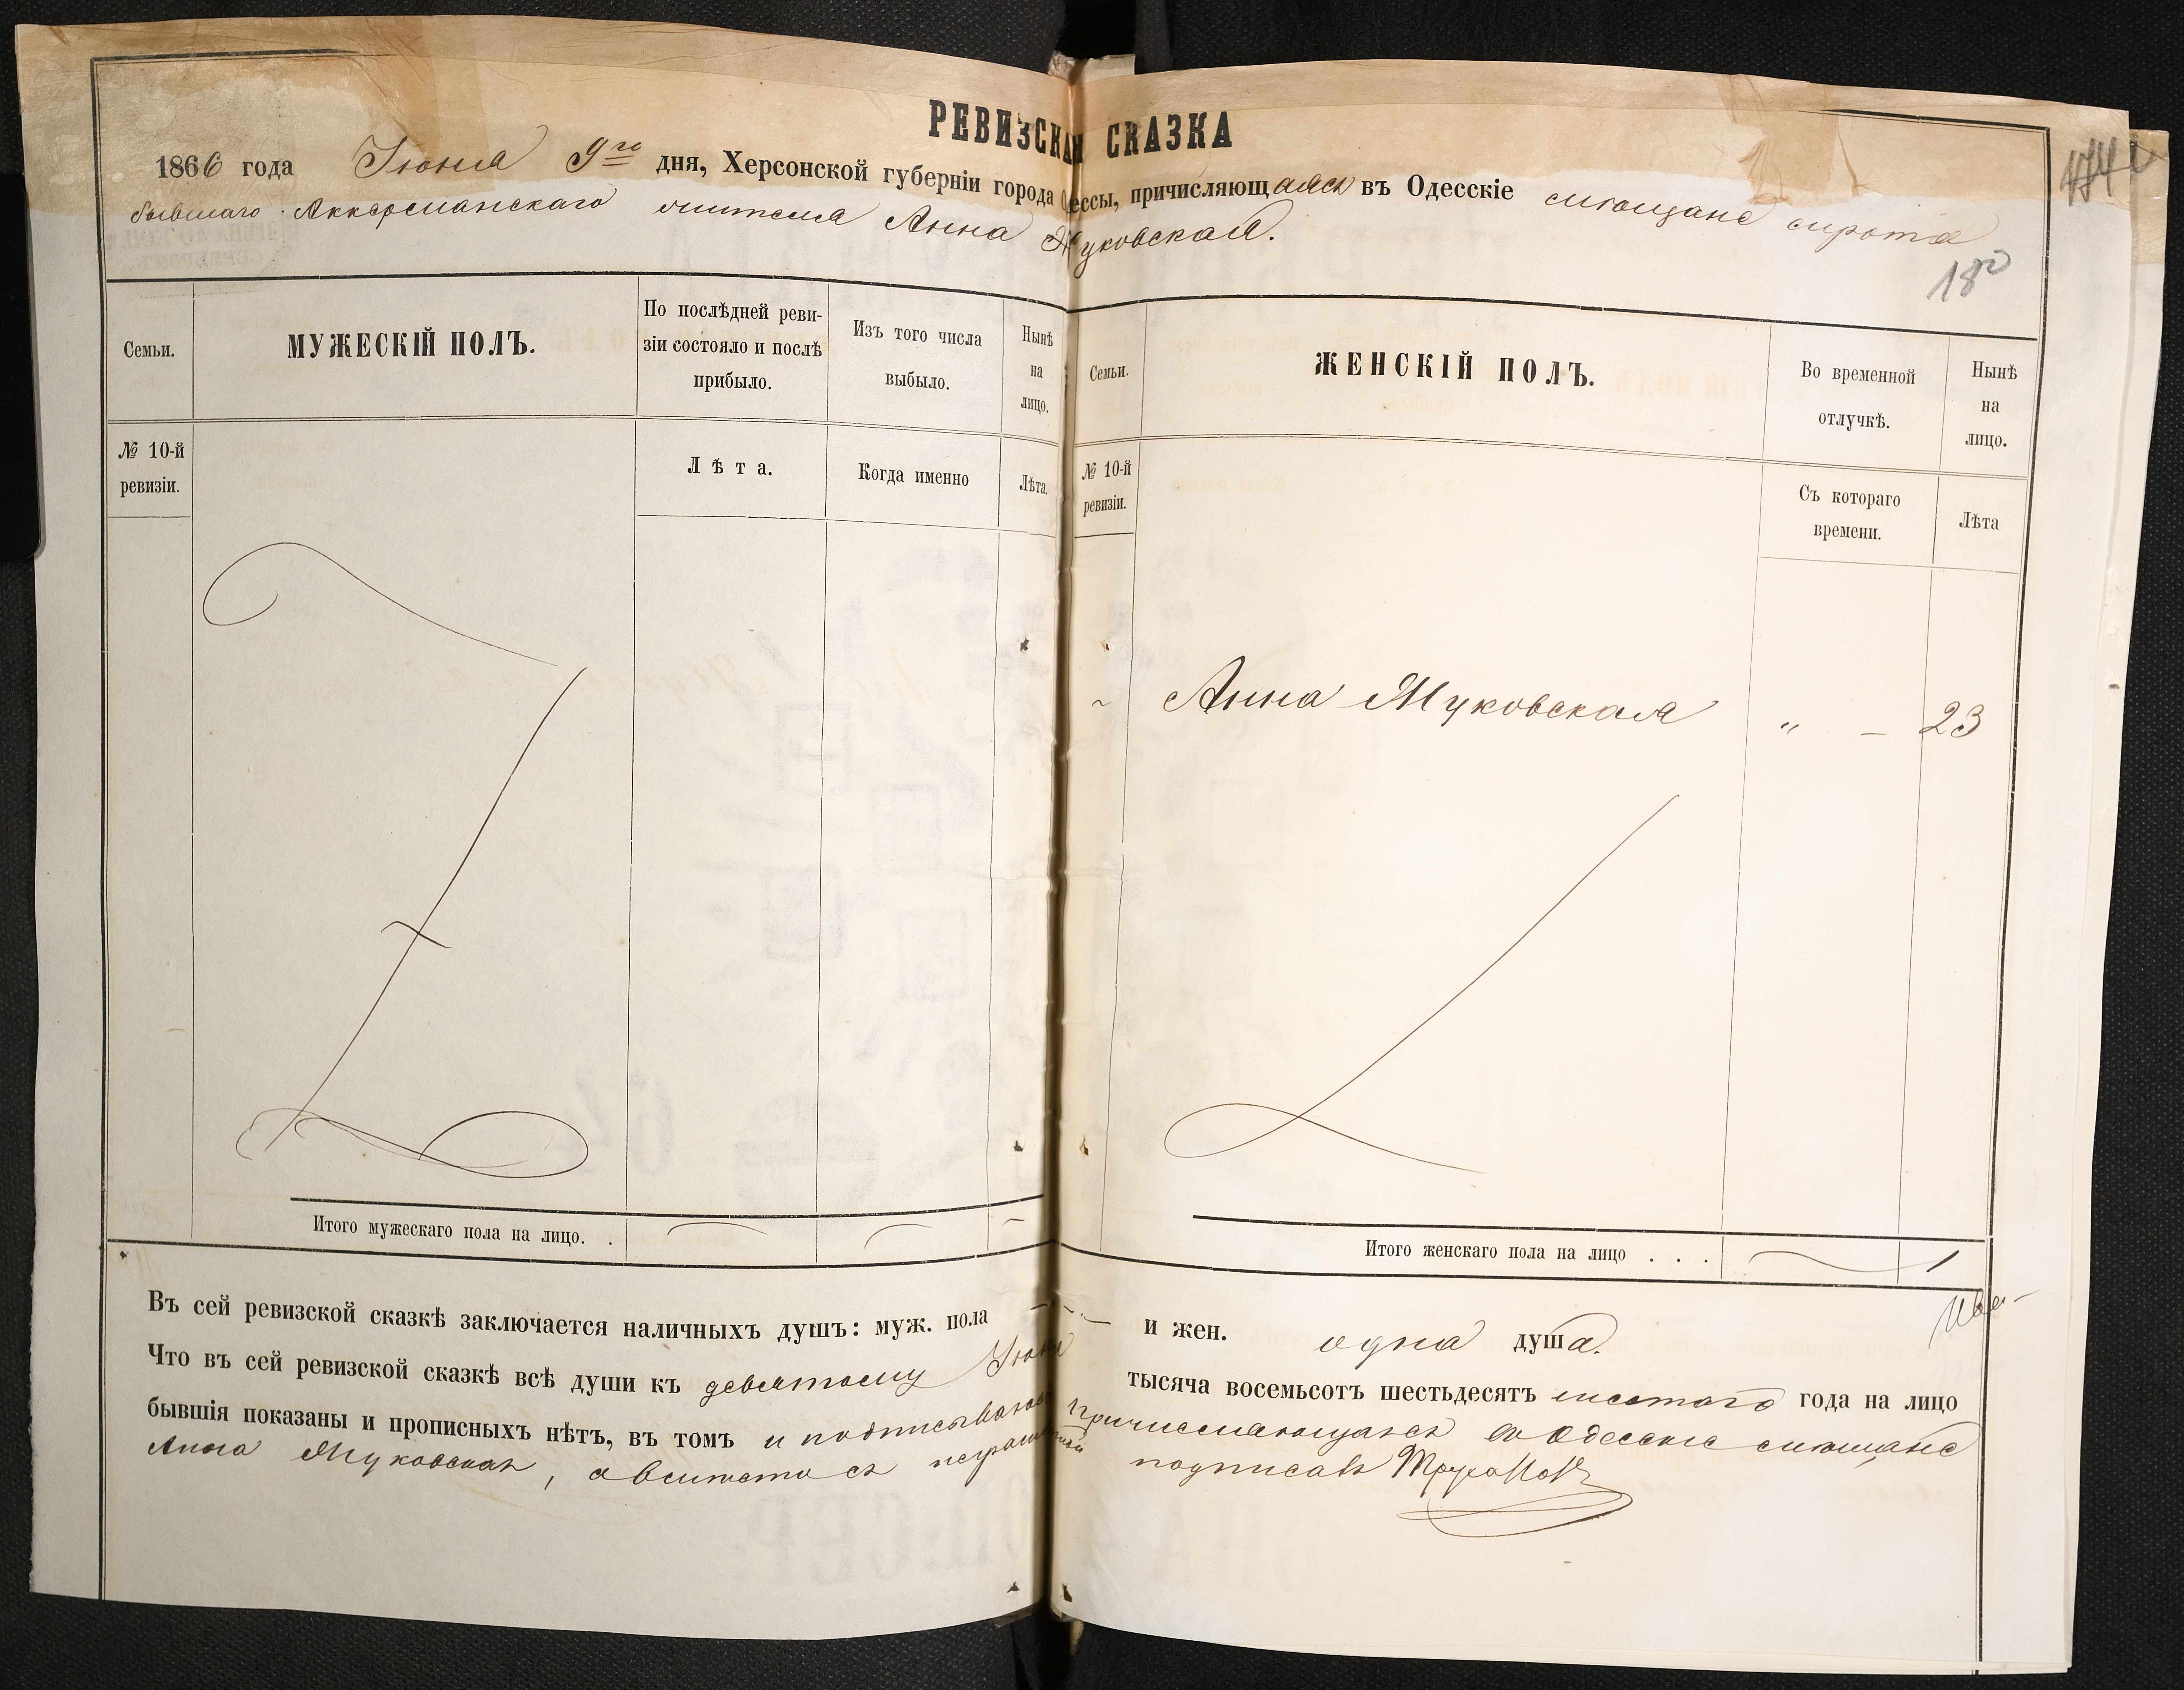 РЕВИЗСКАЯ СКАЗКА
1866 года Июня 9го дня, Херсонской губерніи города Одессы, причисляющаяся въ Одесскіе мѣщане сирота
бывшаго Аккерманскаго учителя Анна Жуковская.
180
Семьи.
МУЖЕСКІЙ ПОЛЪ.
По послѣдней реви-
зіи состояло и послѣ
прибыло.
Изъ того числа
выбыло.
Нынѣ
на
лицо.
№ 10-й
ревизіи.
Лѣта.
Когда именно
Лѣта.
Итого мужескаго пола на лицо. .
Семьи.
ЖЕНСКІЙ ПОЛЪ.
Во временной
отлучкѣ.
Нынѣ
на
лицо.
№ 10-й
ревизіи.
Съ котораго
времени.
Лѣта
Анна Жуковская „ — 23
Итого женскаго пола на лицо . . . 1
Въ сей ревизской сказкѣ заключается наличныхъ душъ: муж. пола — и жен. одна душа.
Что въ сей ревизской сказкѣ всѣ души къ девятому Июня тысяча восемьсотъ шестьдесятъ шестаго года на лицо
бывшія показаны и прописныхъ нѣтъ, въ томъ и подписываюсь причисляющаяся въ Одесскіе мѣщане
Анна Жуковская, а вмѣсто ея неграмотной подписалъ